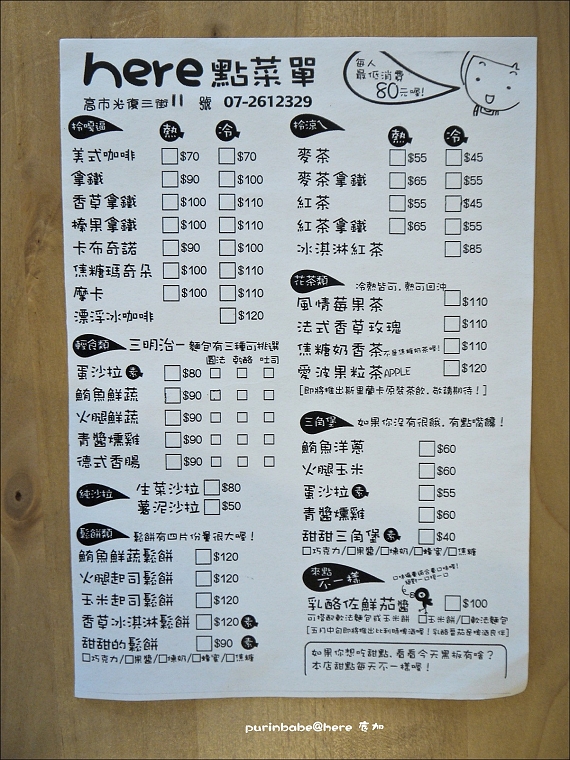 here 點菜單
每人
最低消費
80元喔!
高市光復三街11號 07-2612329
拎嘎逼 熱 冷
美式咖啡 $70 $70
拿鐵 $90 $100
香草拿鐵 $100 $110
榛果拿鐵 $100 $110
卡布奇諾 $90 $100
焦糖瑪奇朵 $100 $110
摩卡 $100 $110
漂浮冰咖啡 $120
輕食類 三明治－麵包有三種可挑選
圓法 乾酪 吐司
蛋沙拉 素 $80
鮪魚鮮蔬 $90
火腿鮮蔬 $90
青醬燻雞 $90
德式香腸 $90
純沙拉 生菜沙拉 $80
薯泥沙拉 $50
鬆餅類 鬆餅有四片份量很大喔!
鮪魚鮮蔬鬆餅 $120
火腿起司鬆餅 $120
玉米起司鬆餅 $120
香草冰淇淋鬆餅 $120 素
甜甜的鬆餅 $90 素
□巧克力/□果醬/□煉奶/□蜂蜜/□焦糖
拎涼ㄟ 熱 冷
麥茶 $55 $45
麥茶拿鐵 $65 $55
紅茶 $55 $45
紅茶拿鐵 $65 $55
冰淇淋紅茶 $85
花茶類 冷熱皆可.熱可回沖
風情莓果茶 $110
法式香草玫瑰 $110
焦糖奶香茶不是焦糖奶茶喔! $110
愛波果粒茶APPLE $120
[即將推出斯里蘭卡原裝茶飲.敬請期待!]
三角堡 如果你沒有很餓.有點嘴饞!
鮪魚洋蔥 $60
火腿玉米 $60
蛋沙拉 素 $55
青醬燻雞 $60
甜甜三角堡 素 $40
□巧克力/□果醬/□煉奶/□蜂蜜/□焦糖
來點
不一樣
乳酪佐鮮茄醬 $100
可搭配軟法麵包或玉米餅 □玉米餅/□軟法麵包
[五月中旬即將推出比利時啤酒喔!乳酪番茄是啤酒良伴]
如果你想吃甜點.看看今天黑板有啥?
本店甜點每天不一樣喔!
purinbabe@here 廖加